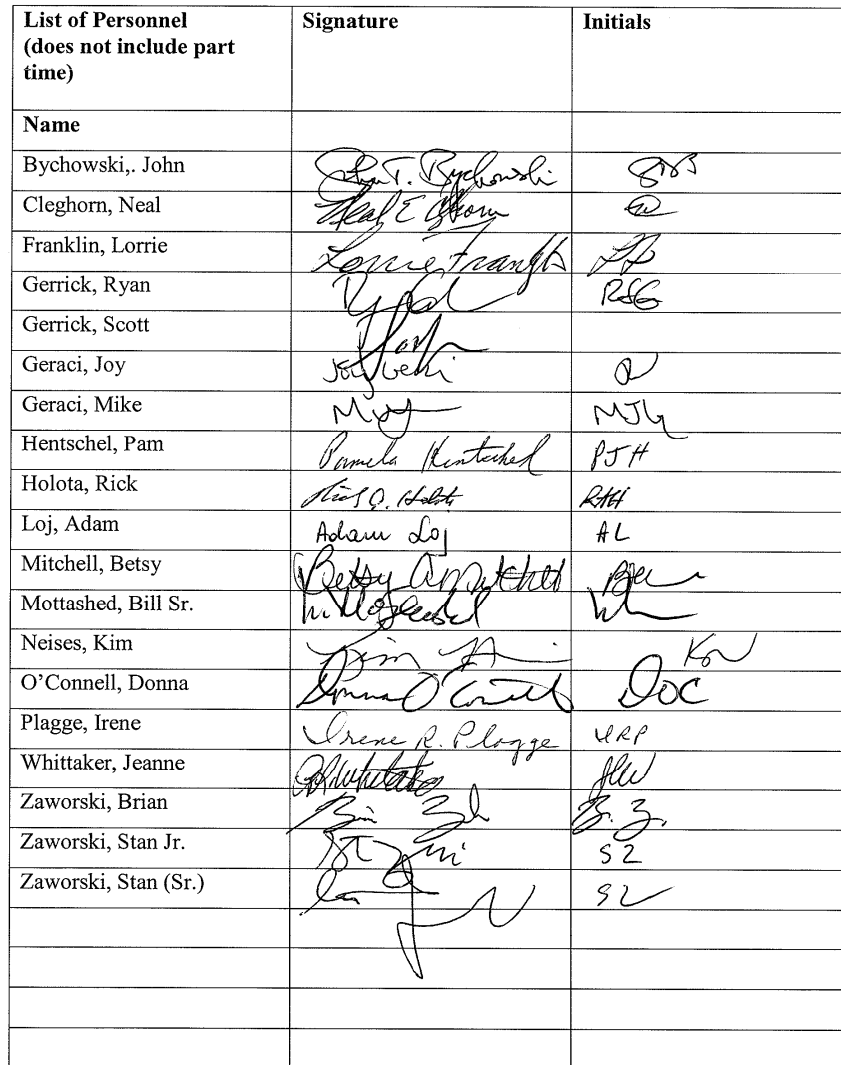 List of Personnel Signature Initials
(does not include part
time)
Name
Bychowski,. John John T. Bychowski
Cleghorn, Neal Neal E
Franklin, Lorrie Lorrie Franklin
Gerrick, Ryan RSG
Gerrick, Scott
Geraci, Joy Joy Geraci
Geraci, Mike MJG
Hentschel, Pam Pamela Hentschel PJH
Holota, Rick Rick J. Holota RJH
Loj, Adam Adam Loj AL
Mitchell, Betsy Betsy A Mitchell
Mottashed, Bill Sr.
Neises, Kim Kim
O'Connell, Donna Donna O'Connell DOC
Plagge, Irene Irene R. Plagge IRP
Whittaker, Jeanne JRW
Zaworski, Brian B. Z.
Zaworski, Stan Jr. SZ
Zaworski, Stan (Sr.) SZ